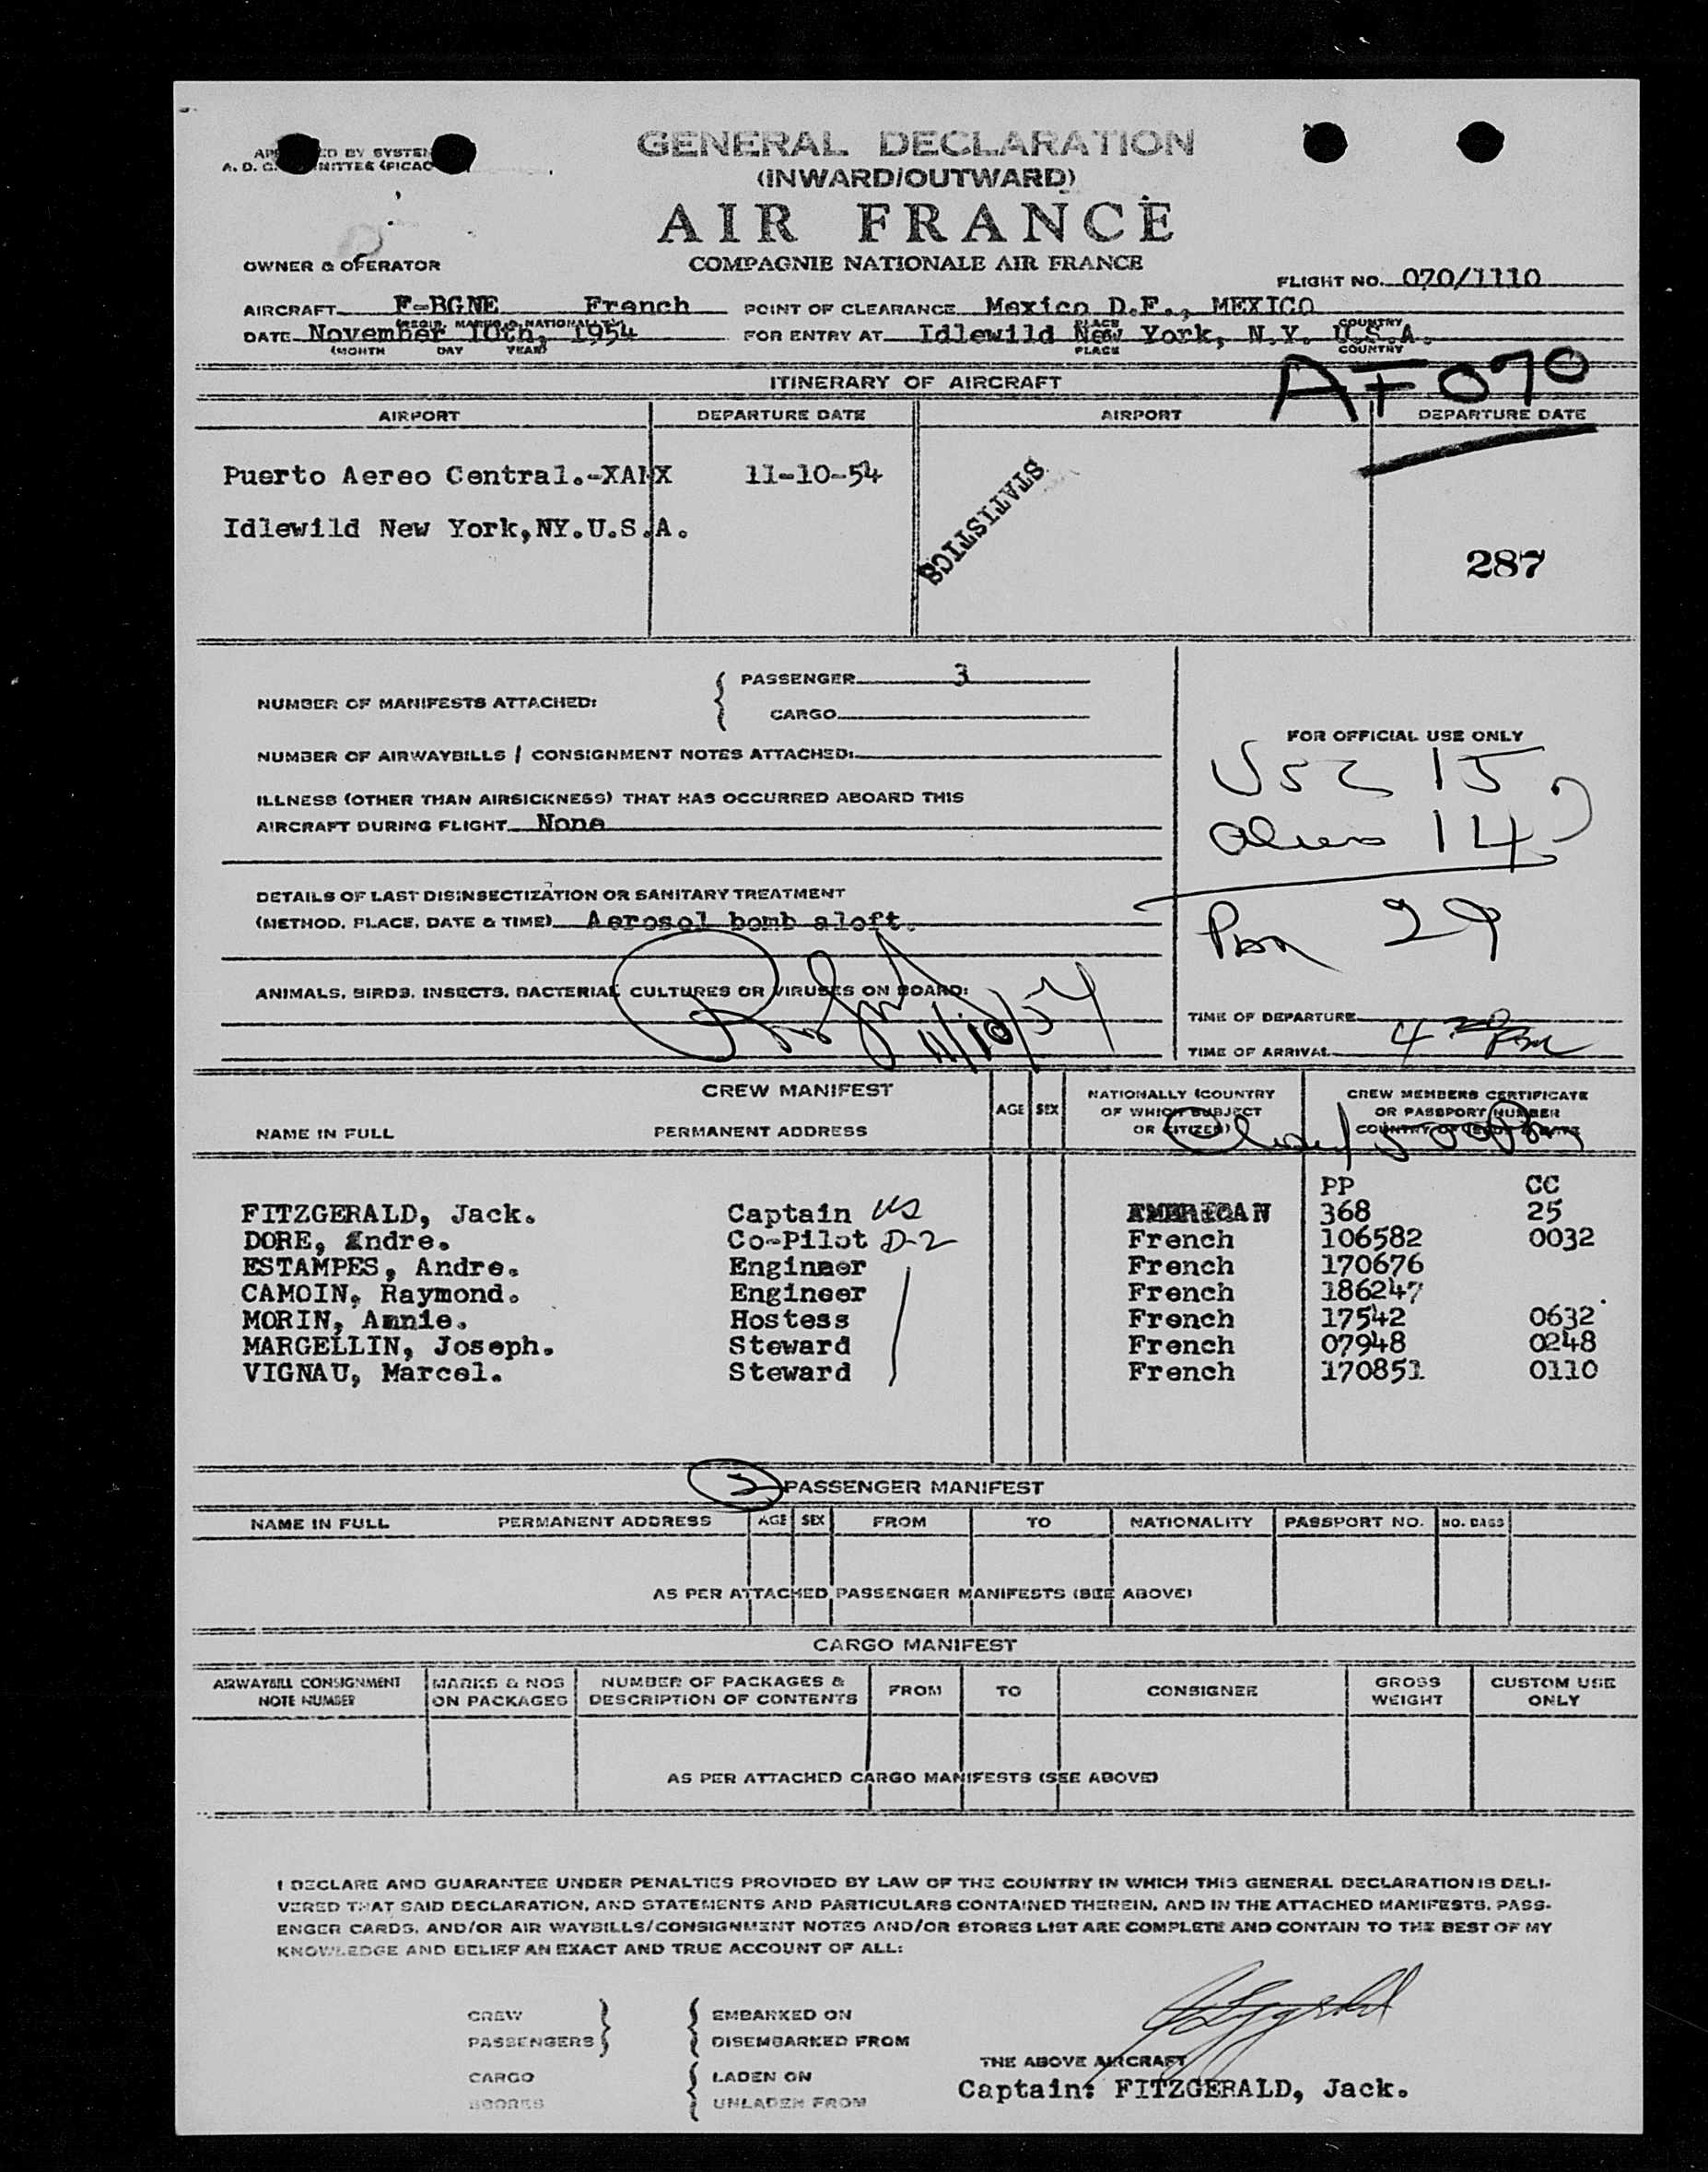 GENERAL DECLARATION
(INWARD/OUTWARD)
AIR FRANCE
COMPAGNIE NATIONALE AIR FRANCE
ED BY SYSTEM
A. D. C. MITTEE (PICAO
OWNER & OPERATOR
FLIGHT NO. 070/1110
AIRCRAFT F-BGNE French POINT OF CLEARANCE Mexico D.F., MEXICO
(REGIS. MARKS & NATIONALITY) PLACE COUNTRY
DATE November 10th, 1954 FOR ENTRY AT Idlewild New York, N.Y. U.S.A.
(MONTH DAY YEAR) PLACE COUNTRY
AF 070
ITINERARY OF AIRCRAFT
AIRPORT DEPARTURE DATE AIRPORT DEPARTURE DATE
Puerto Aereo Central.- 11-10-54
STATISTICS
Idlewild New York,NY.U.S.A.
287
NUMBER OF MANIFESTS ATTACHED: { PASSENGER 3
CARGO
FOR OFFICIAL USE ONLY
NUMBER OF AIRWAYBILLS / CONSIGNMENT NOTES ATTACHED:
USC 15
ILLNESS (OTHER THAN AIRSICKNESS) THAT HAS OCCURRED ABOARD THIS
AIRCRAFT DURING FLIGHT None
Aliens 14
DETAILS OF LAST DISINSECTIZATION OR SANITARY TREATMENT
(METHOD, PLACE, DATE & TIME) Aerosol bomb aloft.
29
ANIMALS, BIRDS, INSECTS, BACTERIAL CULTURES OR VIRUSES ON BOARD:
11/10/54
TIME OF DEPARTURE
TIME OF ARRIVAL 4 20 PM
CREW MANIFEST
NAME IN FULL PERMANENT ADDRESS AGE SEX
NATIONALLY (COUNTRY
OF WHICH SUBJECT
OR CITIZEN)
CREW MEMBERS CERTIFICATE
OR PASSPORT NUMBER
PP CC
FITZGERALD, Jack. Captain US AMERICAN 368 25
DORE, Andre. Co-Pilot D-2 French 106582 0032
ESTAMPES, Andre. Enginner French 170676
CAMOIN, Raymond. Engineer French 186247
MORIN, Annie. Hostess French 17542 0632
MARGELLIN, Joseph. Steward French 07948 0248
VIGNAU, Marcel. Steward French 170851 0110
PASSENGER MANIFEST
NAME IN FULL PERMANENT ADDRESS AGE SEX FROM TO NATIONALITY PASSPORT NO. NO. BAGS
AS PER ATTACHED PASSENGER MANIFESTS (SEE ABOVE)
CARGO MANIFEST
AIRWAYBILL CONSIGNMENT NOTE NUMBER MARKS & NOS ON PACKAGES NUMBER OF PACKAGES & DESCRIPTION OF CONTENTS FROM TO CONSIGNEE GROSS WEIGHT CUSTOM USE ONLY
AS PER ATTACHED CARGO MANIFESTS (SEE ABOVE)
I DECLARE AND GUARANTEE UNDER PENALTIES PROVIDED BY LAW OF THE COUNTRY IN WHICH THIS GENERAL DECLARATION IS DELI-
VERED THAT SAID DECLARATION, AND STATEMENTS AND PARTICULARS CONTAINED THEREIN, AND IN THE ATTACHED MANIFESTS, PASS-
ENGER CARDS, AND/OR AIR WAYBILLS/CONSIGNMENT NOTES AND/OR STORES LIST ARE COMPLETE AND CONTAIN TO THE BEST OF MY
KNOWLEDGE AND BELIEF AN EXACT AND TRUE ACCOUNT OF ALL:
CREW EMBARKED ON
PASSENGERS DISEMBARKED FROM
THE ABOVE AIRCRAFT
CARGO LADEN ON
Captain: FITZGERALD, Jack.
UNLADEN FROM